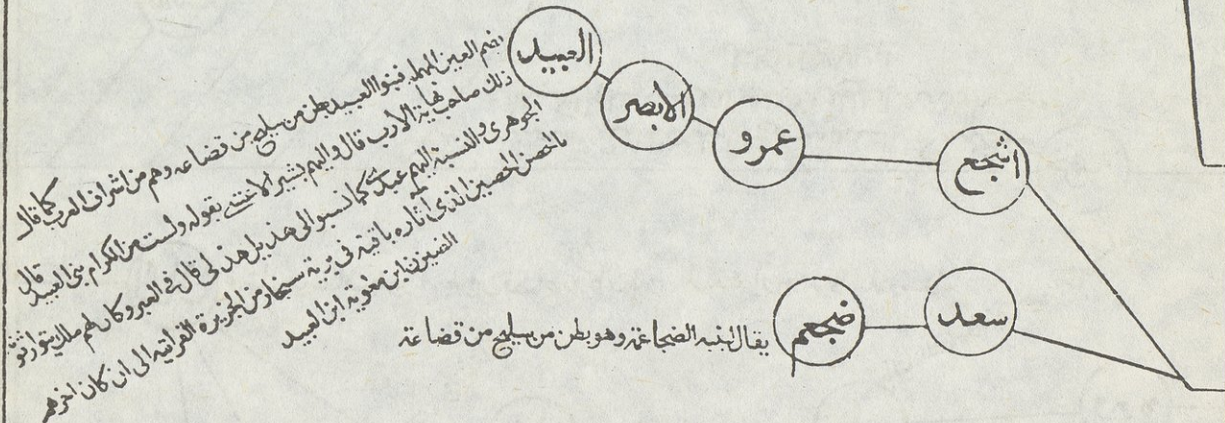 العبيد
الابصر
عمرو
اشجع
بضم العين المهملة فبنوا العبيد بطن من سليح من قضاعه وهم من اشراف العرب كما قال
ذلك صاحب نهاية الارب قال واليهم يشير الاعشى بقوله ولست من الكرام بنى العبيد قال
الجوهرى والنسبة اليهم عبدى كما نسبوا الى هذيل هذلى قال فى العبر وكان لهم ملك يتوارثونه
بالحصن الحصين الذى اثاره باقية فى برية سنجار من الجزيرة الفراتية الى ان كان اخرهم
الضيزن ابن معوية ابن العبيد
سعد
ضجعم
يقال لبنيه الضجاعمة وهو بطن من سليح من قضاعة